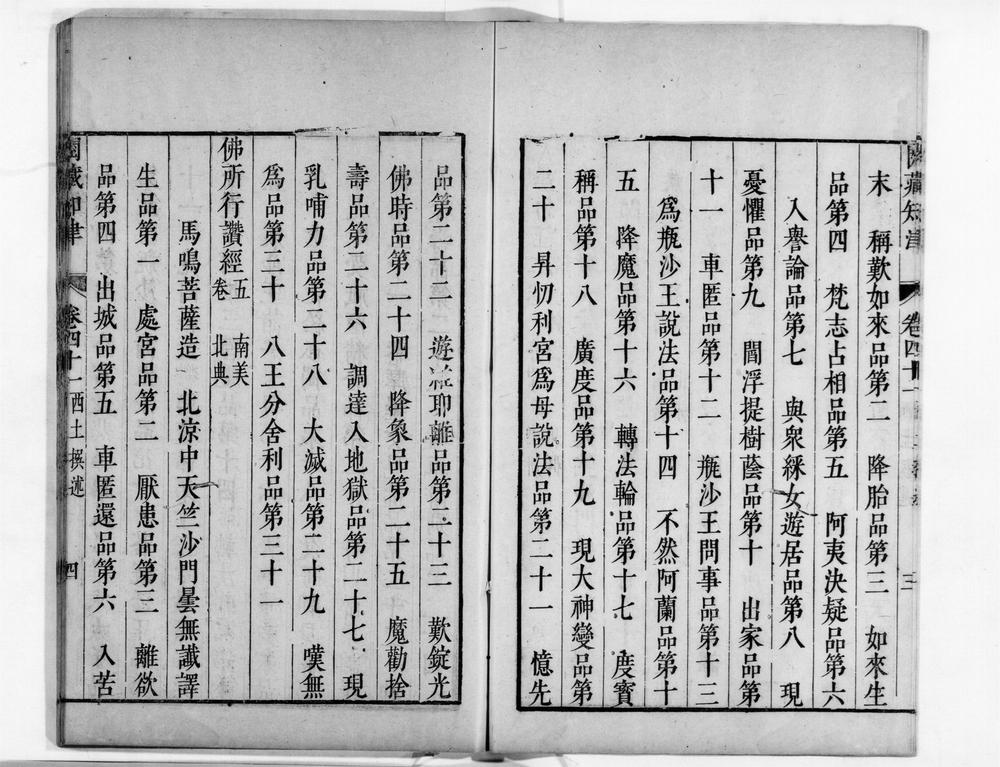 末　稱歎如來品第二　降胎品第三　如來生
品第四　梵志占相品第五　阿夷決疑品第六
入譽論品第七　與衆綵女遊居品第八　現
憂懼品第九　閻浮提樹蔭品第十　出家品第
十一　車匿品第十二　瓶沙王問事品第十三
爲瓶沙王說法品第十四　不然阿蘭品第十
五　降魔品第十六　轉法輪品第十七　度寶
稱品第十八　廣度品第十九　現大神變品第
二十　昇忉利宮爲母說法品第二十一　憶先
品第二十二　遊維耶離品第二十三　歎錠光
佛時品第二十四　降象品第二十五　魔勸捨
壽品第二十六　調達入地獄品第二十七　現
乳哺力品第二十八　大滅品第二十九　嘆無
爲品第三十　八王分舍利品第三十一
佛所行讚經五卷　南美　北典
馬鳴菩薩造　北涼中天竺沙門曇無讖譯
生品第一　處宮品第二　厭患品第三　離欲
品第四　出城品第五　車匿還品第六　入苦
閱藏知津　卷四十一　西土撰述　四